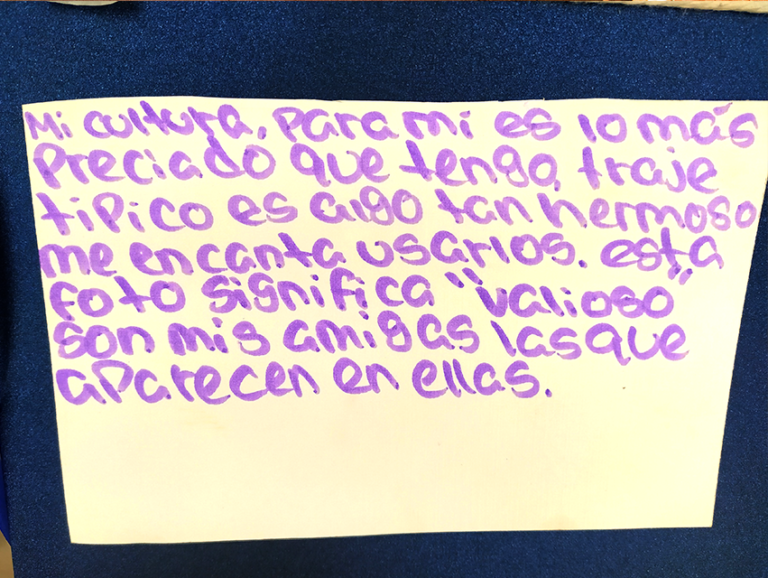 Mi cultura, para mi es lo más
preciado que tengo, traje
tipico es algo tan hermoso
me encanta usarlos. esta
foto significa "valioso"
son mis amigas las que
aparecen en ellas.